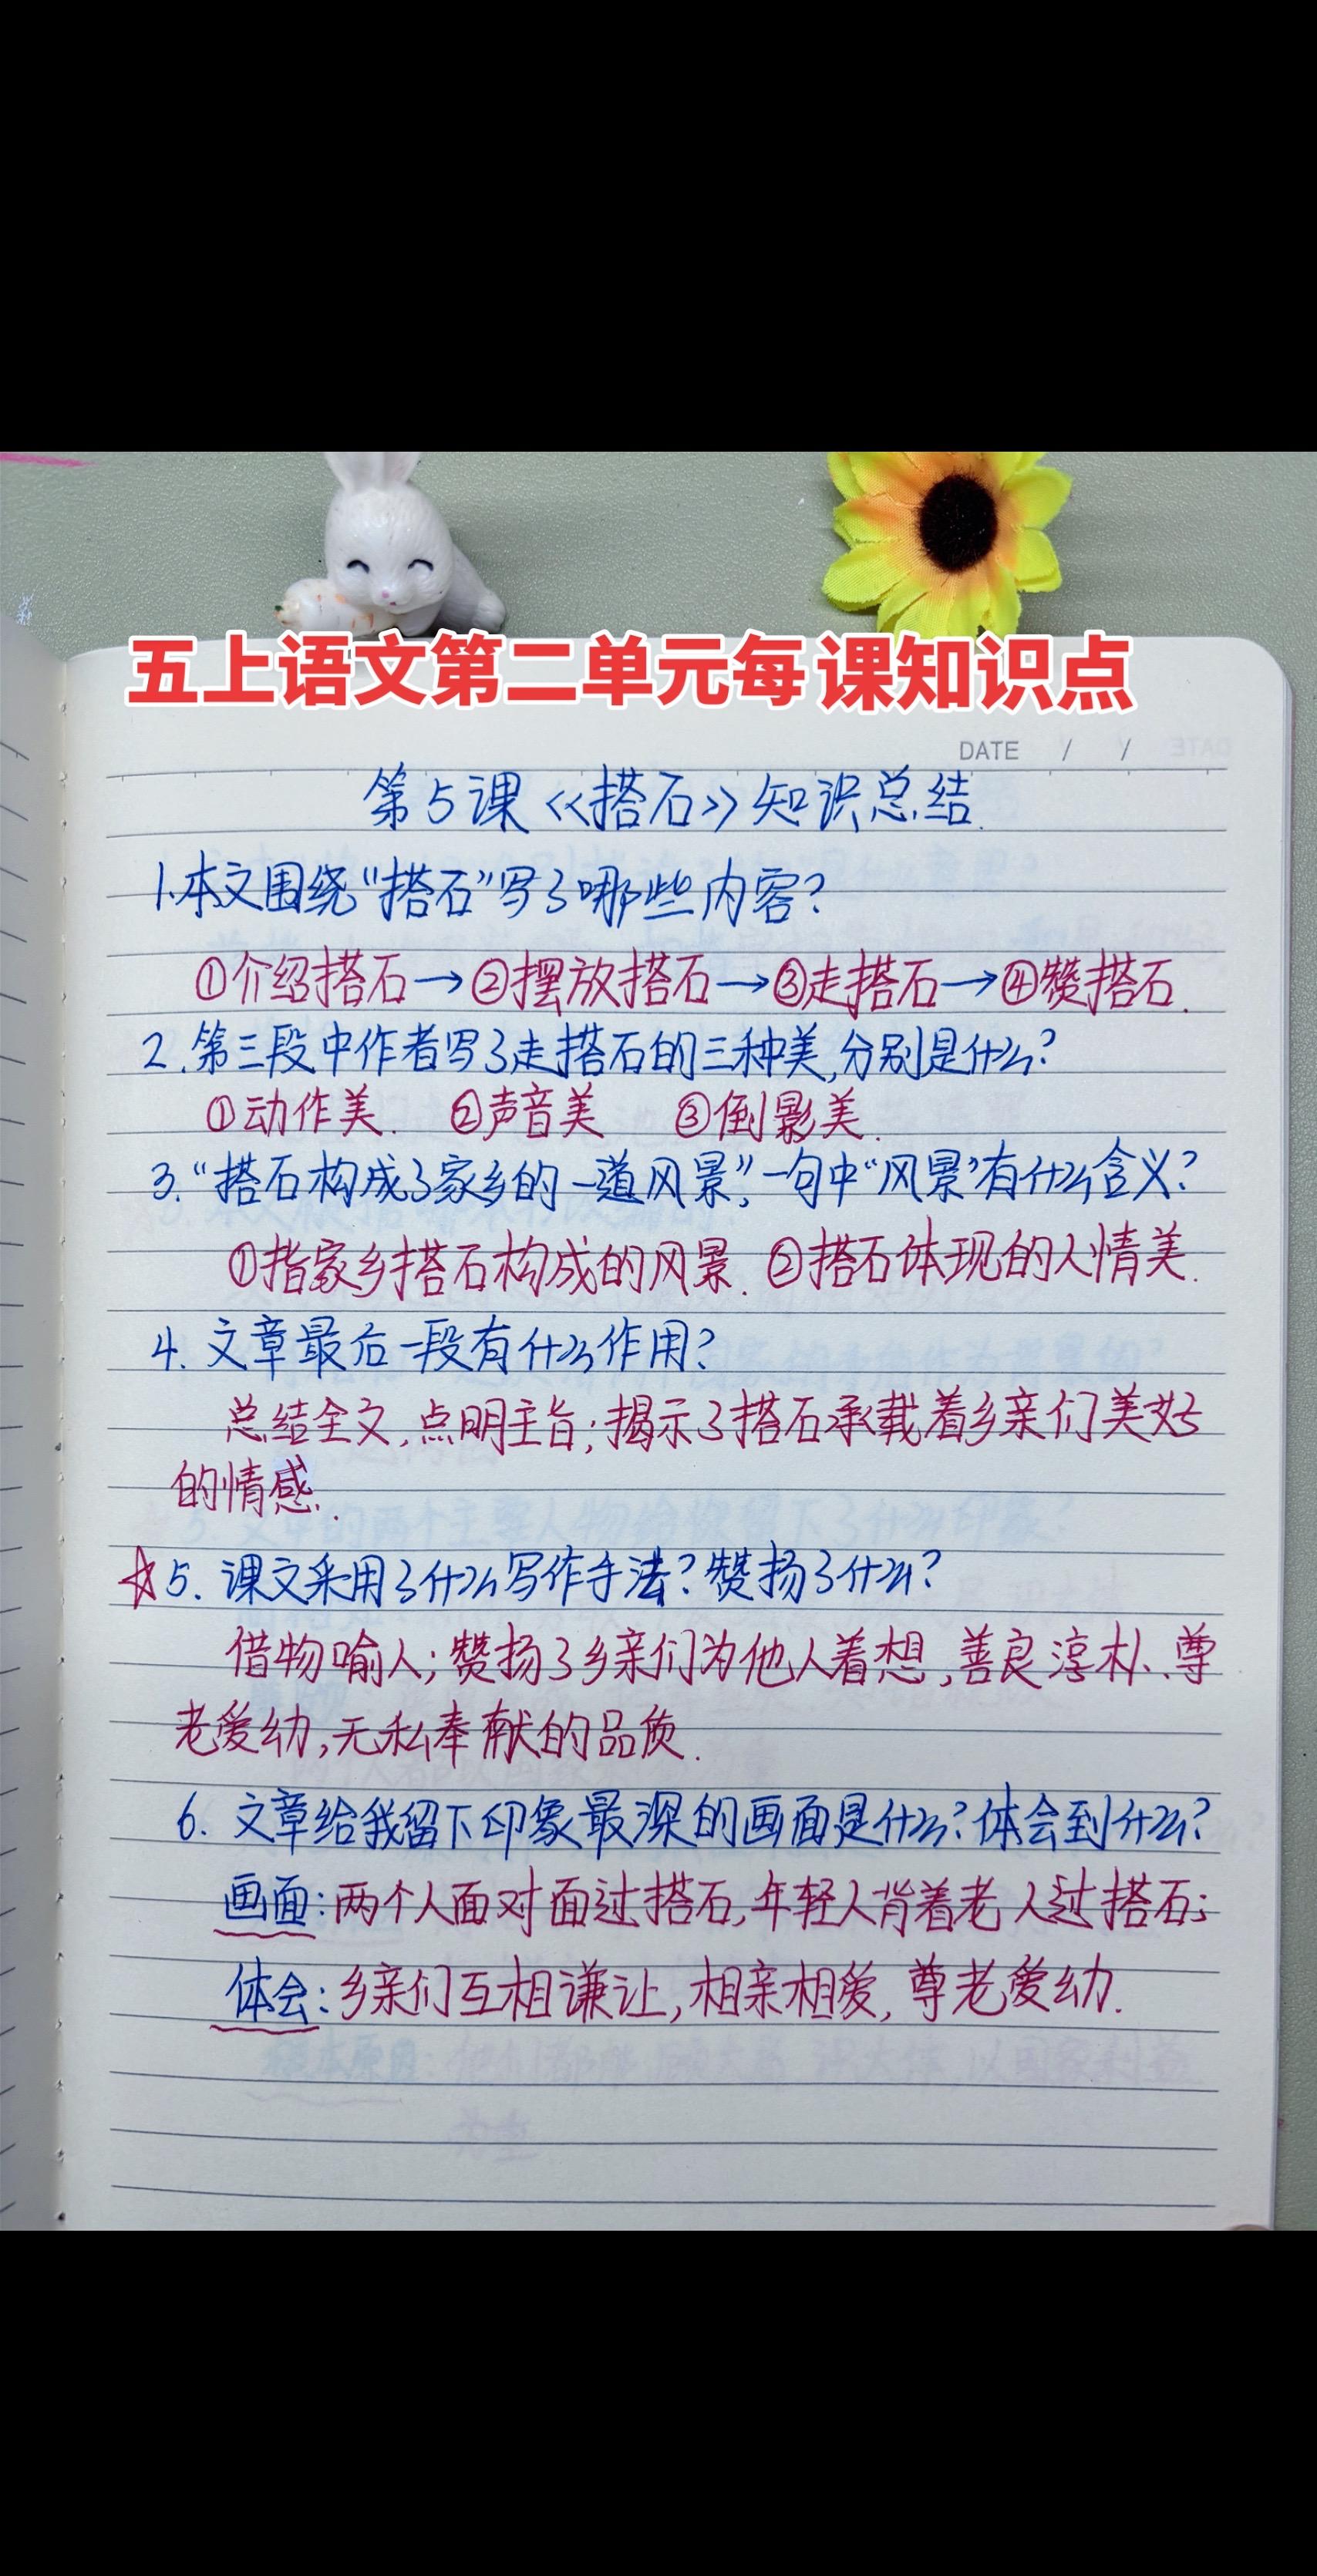 五上语文第二单元每课知识点
DATE / /
第5课《搭石》知识总结.
1.本文围绕“搭石”写了哪些内容?
①介绍搭石→②摆放搭石→③走搭石→④赞搭石.
2.第三段中作者写了走搭石的三种美,分别是什么?
①动作美. ②声音美 ③倒影美.
3.“搭石构成了家乡的一道风景”,一句中“风景”有什么含义?
①指家乡搭石构成的风景. ②搭石体现的人情美.
4.文章最后一段有什么作用?
总结全文,点明主旨;揭示了搭石承载着乡亲们美好
的情感.
☆5.课文采用了什么写作手法?赞扬了什么?
借物喻人;赞扬了乡亲们为他人着想,善良淳朴、尊
老爱幼,无私奉献的品质.
6.文章给我留下印象最深的画面是什么?体会到什么?
画面:两个人面对面过搭石,年轻人背着老人过搭石;
体会:乡亲们互相谦让,相亲相爱,尊老爱幼.